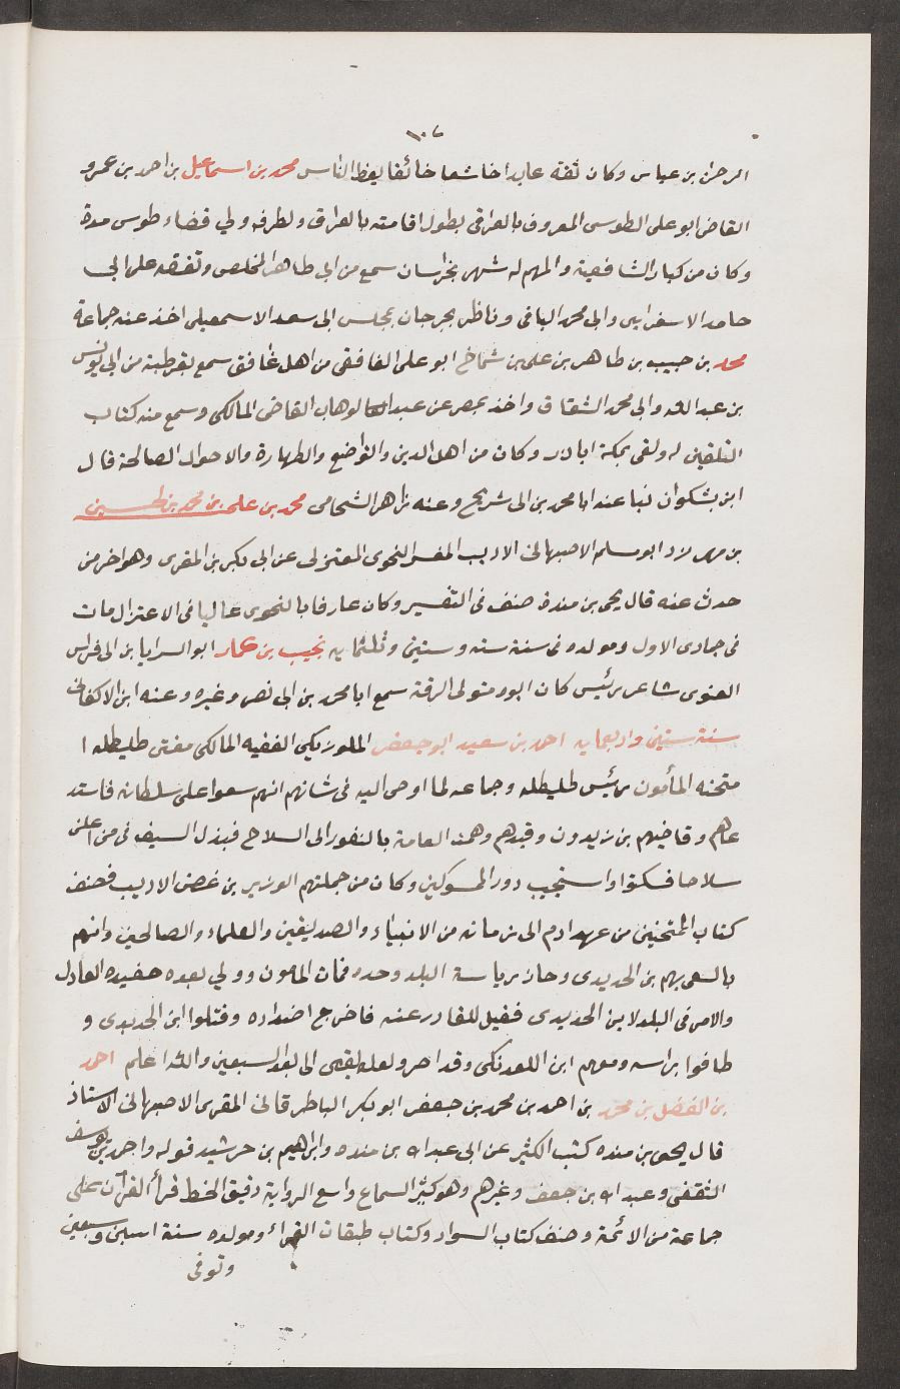 ١٠٧
الرحمن بن عياس وكان ثقة عابدا خاشعا خائفا يعظ الناس محمد بن اسماعيل بن احمد بن عمرو
القاضي ابو علي الطوسي المعروف بالعراقي بطول اقامته بالعراق ولظرفه ولي قضاء طوس مدة
وكان من كبار الشافعية والمهم له شهر بخراسان سمع من ابي طاهر المخلص وتفقه على ابي
حامد الاسفرايني وابي محمد الباقي وناظر بجرجان بمجلس ابي سعد الاسمعيلي اخذ عنه جماعة
محمد بن حبيب بن طاهر بن علي بن شماخ ابو علي الغافقي من اهل غافق سمع بقرطبة من ابي يونس
بن عبد الله وابي محمد الشقاق واخذ بمصر عن عبد الوهاب القاضي المالكي وسمع منه كتاب
التلقين له ولقى بمكة ابا ذر وكان من اهل الدين والتواضع والطهارة والاحوال الصالحة قال
ابن بشكوال نبا عنه ابا محمد بن ابي شريح وعنه زاهر الشحامي محمد بن علي بن محمد بن الحسين
بن مهر لزد ابو مسلم الاصبهاني الاديب المفسر النحوي المعتزلي عن ابي بكر بن المقرى وهو اخر من
حدث عنه قال يحي بن مندة صنف في التفسير وكان عارفا بالنحوى عاليا في الاعتزال مات
في جمادى الاول ومولده في سنة ستة وستين وثلثمايه نجيب بن عمار ابو السرايا بن ابي فراس
الغنوى شاعر رئيس كان ابوه متولى الرقة سمع ابا محمد بن ابي نصر وغيره وعنه ابن الاكفاني
سنة ستين واربعمايه احمد بن سعيد ابو جعفر اللورنكي الفقيه المالكي مفتي طليطله ا
متحنه المأمون رئيس طليطله وجماعه لما اوحى اليه في شانهم انهم سعوا على سلطانه فاستد
عاهم وقاضيهم بن زيدون وقيدهم وهمت العامة بالنفور الى السلاح فبذل السيف في من اعلن
سلاحا فسكتوا واستجيب دور المسوكين وكان من جملتهم الوزير بن غصن الاديب فصنف
كتاب الممتحنين من عهد ادم الى زمانه من الانبياء والصديقين والعلماء والصالحين واتهم
بالسعى بهم بن الحديدى وحاز رياسة البلد وحده فمات المامون وولي بعده حفيده العادل
والامر في البلد لابن الحديدى فقيل للقادر عنه فاخرج اضداده وقتلوا ابن الحديدى و
طافوا براسه ومنهم ابن اللورنكي وقد احر ولعله بقى الى بعد السبعين والله اعلم احمد
بن الفضل بن محمد بن احمد بن محمد بن جعفر ابو بكر الباطرقاني المقرى الاصبهاني الاستاذ
قال يحي بن منده كتب الكثير عن ابي عبد الله بن منده وابراهيم بن خرشيد قوله واحمد بن يوسف
الثقفى وعبد الله بن جعفر وغيرهم وهو كثير السماع واسع الرواية دقيق الخط قرأ القرآن على
جماعة من الائمة وصنف كتاب السواد وكتاب طبقات القراء ومولده سنة اسبن وسبعين
وتوفى